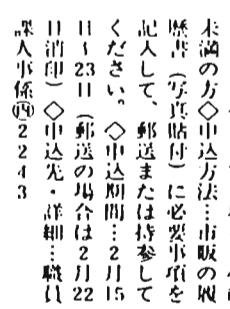 未満の方◇申込方法…市販の履
歴書（写真貼付）に必要事項を
記入して、郵送または持参して
ください。◇申込期間…2月15
日〜23日（郵送の場合は2月22
日消印）◇申込先・詳細…職員
課人事係㊃2243